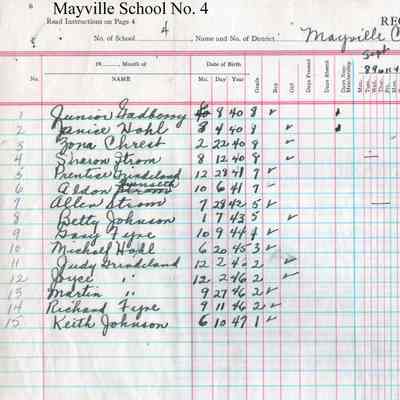 Mayville School No. 4
6
Read Instructions on Page 4
REC
No. of School 4, Name and No. of District Mayville C
Sept
19 Month of Date of Birth
No. NAME Mo. Day Year Grade Boy Girl Days Present Days Absent Days Non-Membership Mon. Tues. Wed. Thu. Fri. Mon.
8 9 10 11
1 Junior Gadberry 8 40 8 ✓
2 Janice Hohl 3 4 40 8 ✓
3 Zona Chrest 2 22 40 8 ✓
4 Sharon Strom 8 12 40 8 ✓
5 Prentice Grindeland 12 28 41 7 ✓
6 Aldon 10 6 41 7 ✓
7 Allen Strom 7 28 42 5 ✓
8 Betty Johnson 1 7 43 5 ✓
9 Gary Fyre 10 9 44 4 ✓
10 Michael Hohl 6 20 45 3 ✓
11 Judy Grindeland 12 2 2 ✓
12 Joyce " 12 2 46 2 ✓
13 Martin " 9 27 46 2 ✓
14 Richard Fyre 9 11 46 2 ✓
15 Keith Johnson 6 10 47 1 ✓